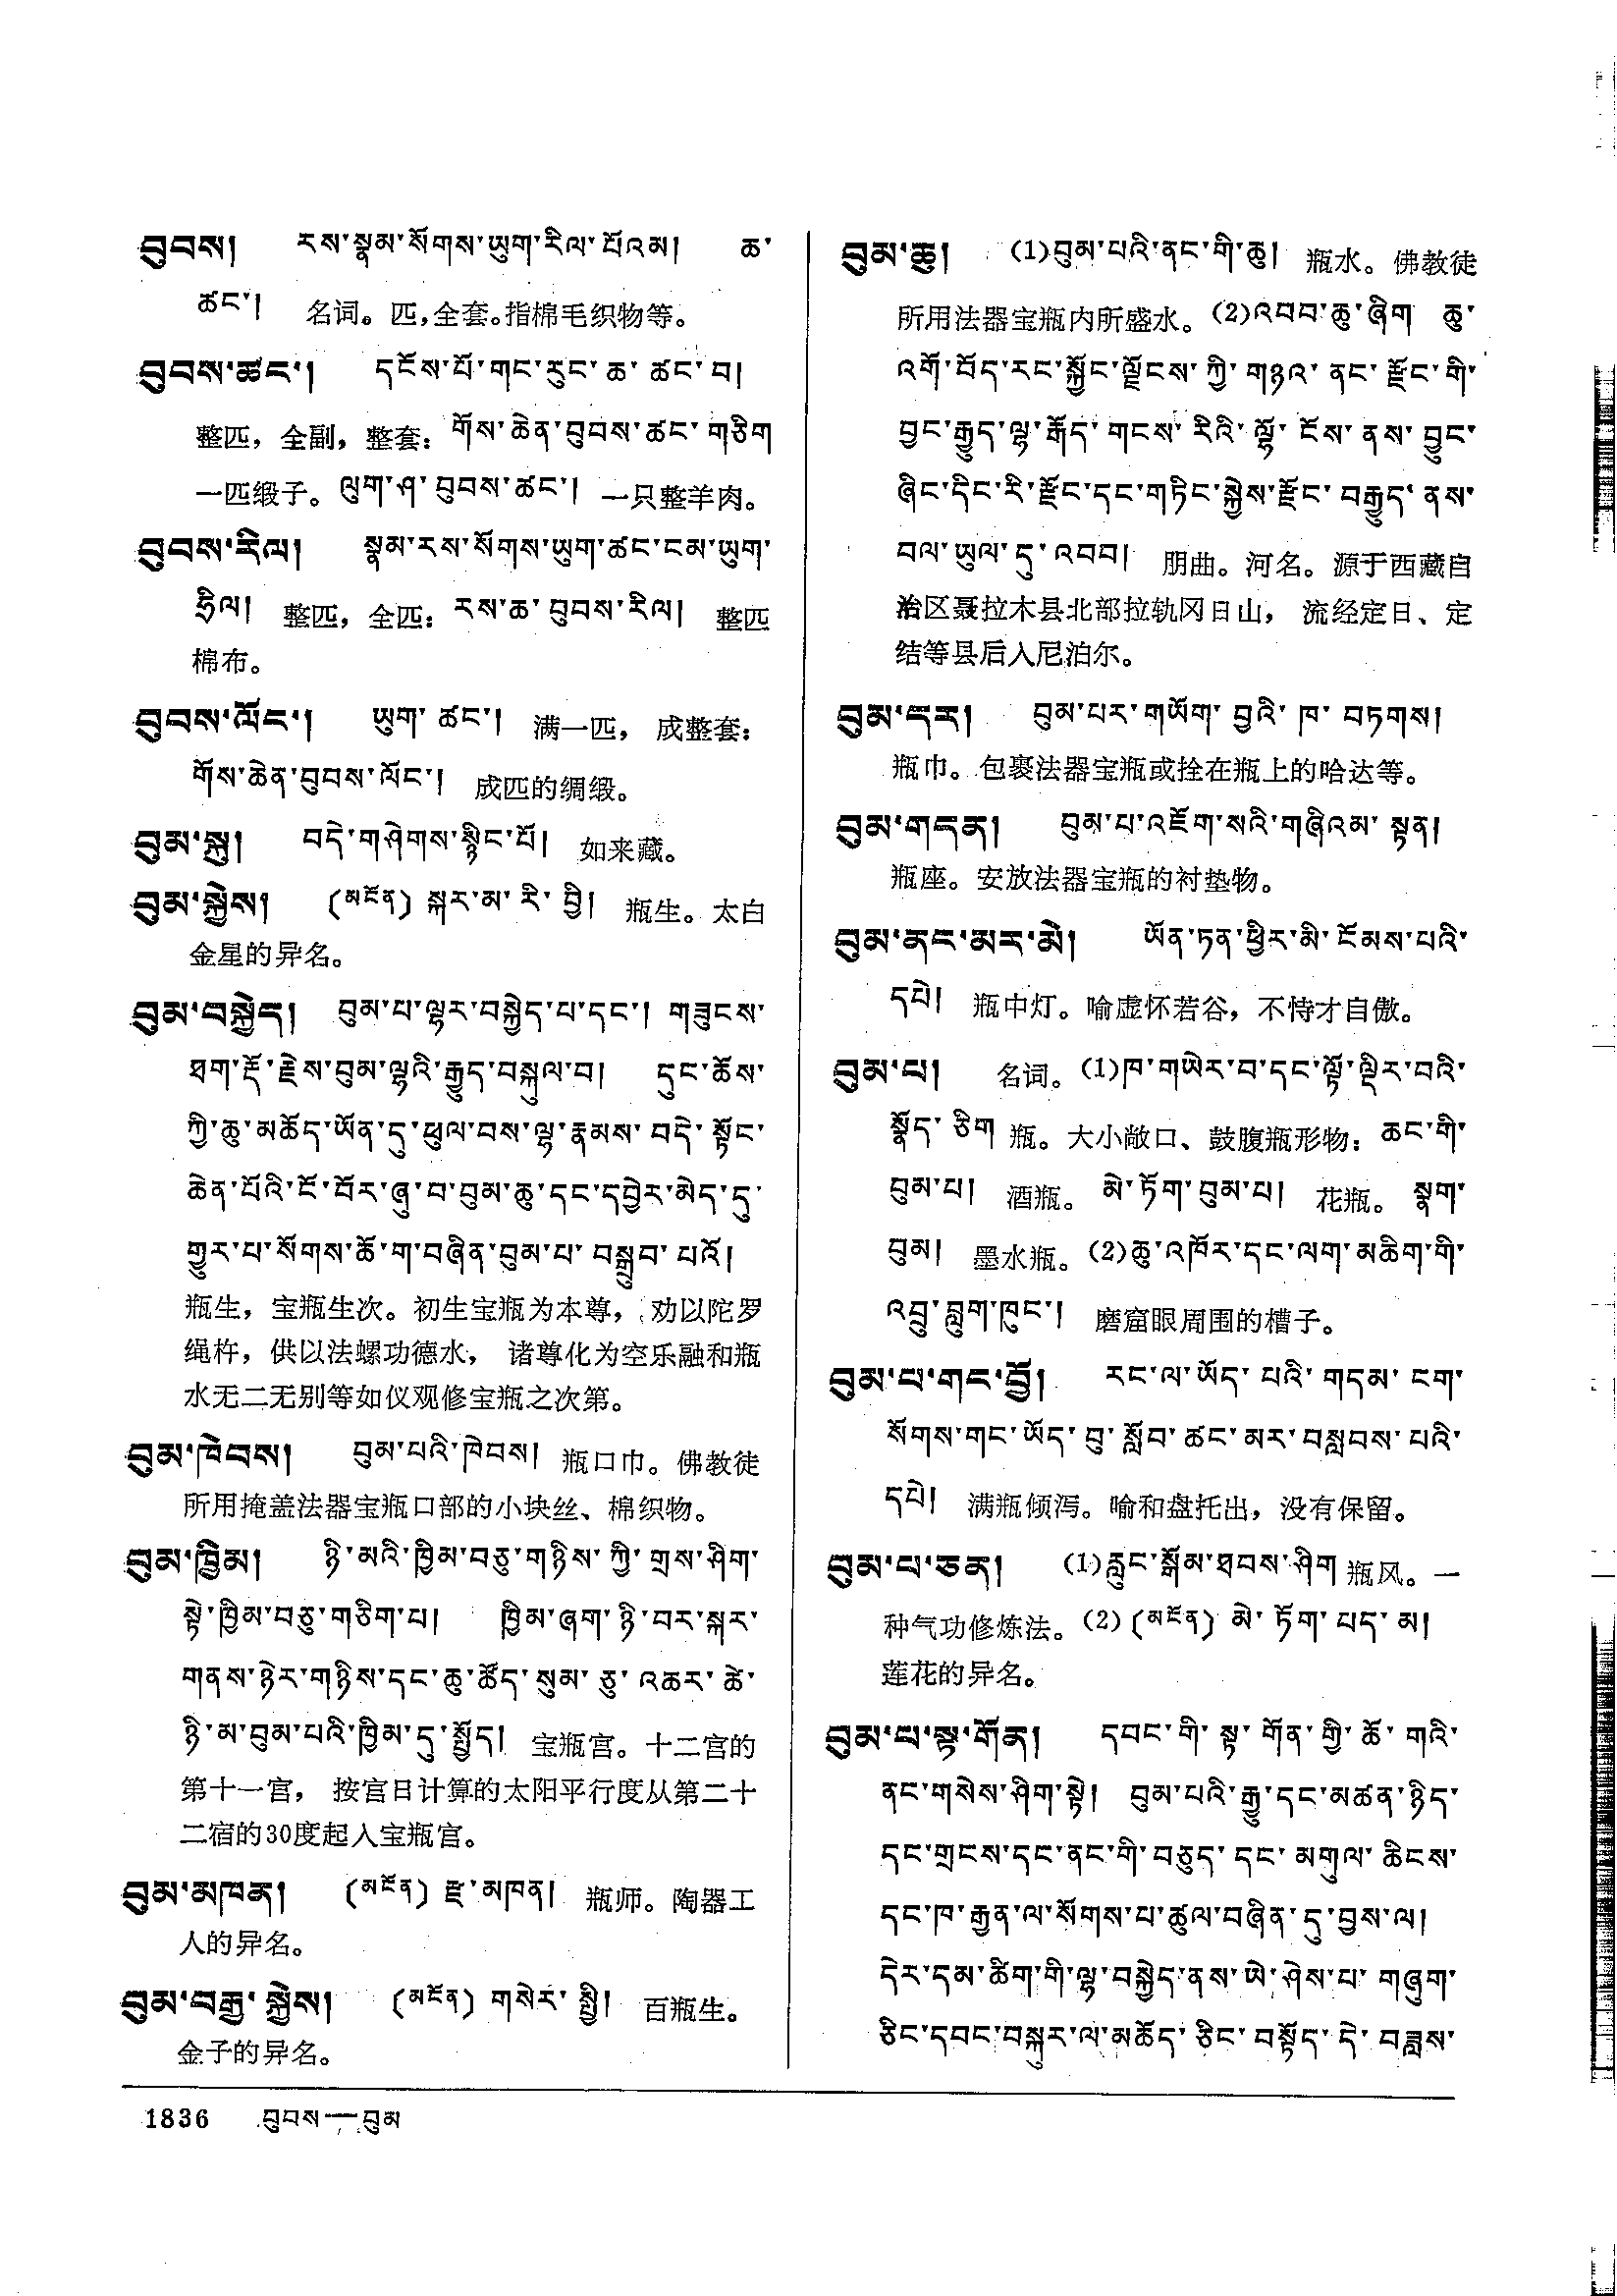 བུབས། རས་སྣམ་སོགས་ཡུག་རིལ་པོའམ། ཆ་
ཚང་། 名词。匹,全套。指棉毛织物等。
བུབས་ཚང་། དངོས་པོ་གང་རུང་ཆ་ཚང་བ།
整匹，全副，整套：གོས་ཆེན་བུབས་ཚང་གཅིག
一匹缎子。ལུག་ཤ་བུབས་ཚང་། 一只整羊肉。
བུབས་རིལ། སྣམ་རས་སོགས་ཡུག་ཚང་ངམ་ཡུག་
ཧྲིལ། 整匹，全匹：རས་ཆ་བུབས་རིལ། 整匹
棉布。
བུབས་ལོང་། ཡུག་ཚང་། 满一匹，成整套：
གོས་ཆེན་བུབས་ལོང་། 成匹的绸缎。
བུམ་སྐུ། བདེ་གཤེགས་སྙིང་པོ། 如来藏。
བུམ་སྐྱེས། (མངོན) སྐར་མ་རི་བྱི། 瓶生。太白
金星的异名。
བུམ་བསྐྱེད། བུམ་པ་ལྷར་བསྐྱེད་པ་དང་། གཟུངས་
ཐག་རྡོ་རྗེས་བུམ་ལྷའི་རྒྱུད་བསྐུལ་བ། དུང་ཆོས་
ཀྱི་ཆུ་མཆོད་ཡོན་དུ་ཕུལ་བས་ལྷ་རྣམས་བདེ་སྟོང་
ཆེན་པོའི་ངོ་བོར་ཞུ་བ་བུམ་ཆུ་དང་དབྱེར་མེད་དུ་
གྱུར་པ་སོགས་ཆོ་ག་བཞིན་བུམ་པ་བསྒྲུབ་པའོ།
瓶生，宝瓶生次。初生宝瓶为本尊，劝以陀罗
绳杵，供以法螺功德水，诸尊化为空乐融和瓶
水无二无别等如仪观修宝瓶之次第。
བུམ་ཁེབས། བུམ་པའི་ཁེབས། 瓶口巾。佛教徒
所用掩盖法器宝瓶口部的小块丝、棉织物。
བུམ་ཁྱིམ། ཉི་མའི་ཁྱིམ་བཅུ་གཉིས་ཀྱི་གྲས་ཤིག་
སྟེ་ཁྱིམ་བཅུ་གཅིག་པ། ཁྱིམ་ཞག་ཉི་བར་སྐར་
གནས་ཉེར་གཉིས་དང་ཆུ་ཚོད་སུམ་ཅུ་འཆར་ཚེ་
ཉི་མ་བུམ་པའི་ཁྱིམ་དུ་སྤྱོད། 宝瓶宫。十二宫的
第十一宫，按宫日计算的太阳平行度从第二十
二宿的30度起入宝瓶宫。
བུམ་མཁན། (མངོན) རྫ་མཁན། 瓶师。陶器工
人的异名。
བུམ་བརྒྱ་སྐྱེས། (མངོན) གསེར་སྤྱི། 百瓶生。
金子的异名。
བུམ་ཆུ། (1)བུམ་པའི་ནང་གི་ཆུ། 瓶水。佛教徒
所用法器宝瓶内所盛水。(2)འབབ་ཆུ་ཞིག ཆུ་
འགོ་བོད་རང་སྐྱོང་ལྗོངས་ཀྱི་གཉའ་ནང་རྫོང་གི་
བྱང་རྒྱུད་ལྷ་རྒོད་གངས་རིའི་ལྷོ་ངོས་ནས་བྱུང་
ཞིང་དིང་རི་རྫོང་དང་གཏིང་སྐྱེས་རྫོང་བརྒྱུད་ནས་
བལ་ཡུལ་དུ་འབབ། 朋曲。河名。源于西藏自
治区聂拉木县北部拉轨冈日山，流经定日、定
结等县后入尼泊尔。
བུམ་དར། བུམ་པར་གཡོག་བྱའི་ཁ་བཏགས།
瓶巾。包裹法器宝瓶或拴在瓶上的哈达等。
བུམ་གདན། བུམ་པ་འཇོག་སའི་གཞིའམ་སྟན།
瓶座。安放法器宝瓶的衬垫物。
བུམ་ནང་མར་མེ། ཡོན་ཏན་ཕྱིར་མི་ངོམས་པའི་
དཔེ། 瓶中灯。喻虚怀若谷，不恃才自傲。
བུམ་པ། 名词。(1)ཁ་གཡེར་བ་དང་ལྟོ་ལྡིར་བའི་
སྣོད་ཅིག 瓶。大小敞口、鼓腹瓶形物：ཆང་གི་
བུམ་པ། 酒瓶。མེ་ཏོག་བུམ་པ། 花瓶。སྣག་
བུམ། 墨水瓶。(2)ཆུ་འཁོར་དང་ལག་མཆིག་གི་
འབྲུ་བླུག་ཁུང་། 磨窟眼周围的槽子。
བུམ་པ་གང་བྱོ། རང་ལ་ཡོད་པའི་གདམ་ངག་
སོགས་གང་ཡོད་བུ་སློབ་ཚང་མར་བསླབས་པའི་
དཔེ། 满瓶倾泻。喻和盘托出，没有保留。
བུམ་པ་ཅན། (1)རླུང་སྒོམ་ཐབས་ཤིག 瓶风。一
种气功修炼法。(2)(མངོན) མེ་ཏོག་པད་མ།
莲花的异名。
བུམ་པ་སྟ་གོན། དབང་གི་སྟ་གོན་གྱི་ཆོ་གའི་
ནང་གསེས་ཤིག་སྟེ། བུམ་པའི་རྒྱུ་དང་མཚན་ཉིད་
དང་གྲངས་དང་ནང་གི་བཅུད་དང་མགུལ་ཆིངས་
དང་ཁ་རྒྱན་ལ་སོགས་པ་ཚུལ་བཞིན་དུ་བྱས་ལ།
དེར་དམ་ཚིག་གི་ལྷ་བསྐྱེད་ནས་ཡེ་ཤེས་པ་གཞུག་
ཅིང་དབང་བསྐུར་ལ་མཆོད་ཅིང་བསྟོད་དེ་བཟླས་
1836 བུབས—བུམ